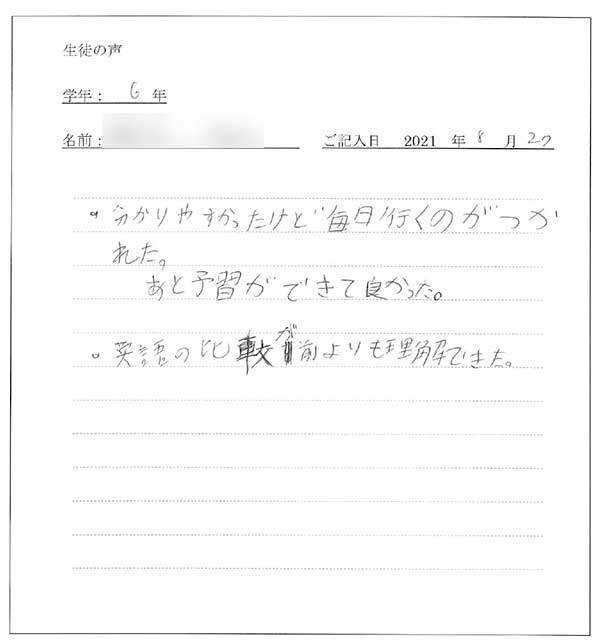 生徒の声
学年： 6 年
名前： ご記入日 2021 年 8 月 27
• 分かりやすかったけど毎日行くのがつか
れた。
あと予習ができて良かった。
• 英語の比較が前よりも理解できた。